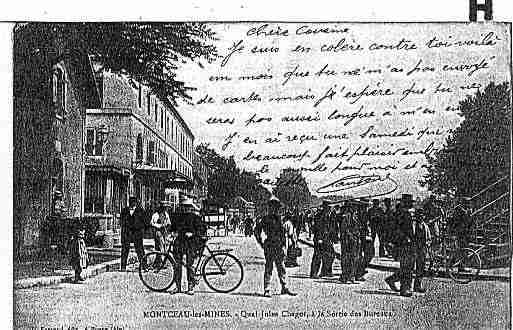 H
Chère Cousine
Je suis en colère contre toi voilà
em mois que tu ne m'as pas envoyé
de cartes mais j'éspère que tu ne
ceras pas aussi longue a m'en en
J'en ai reçu une Samedi qui
beaucoup fait plaisir
pour moi et
MONTCEAU-les-MINES. - Quai Jules Chagot, à la Sortie des Bureaux